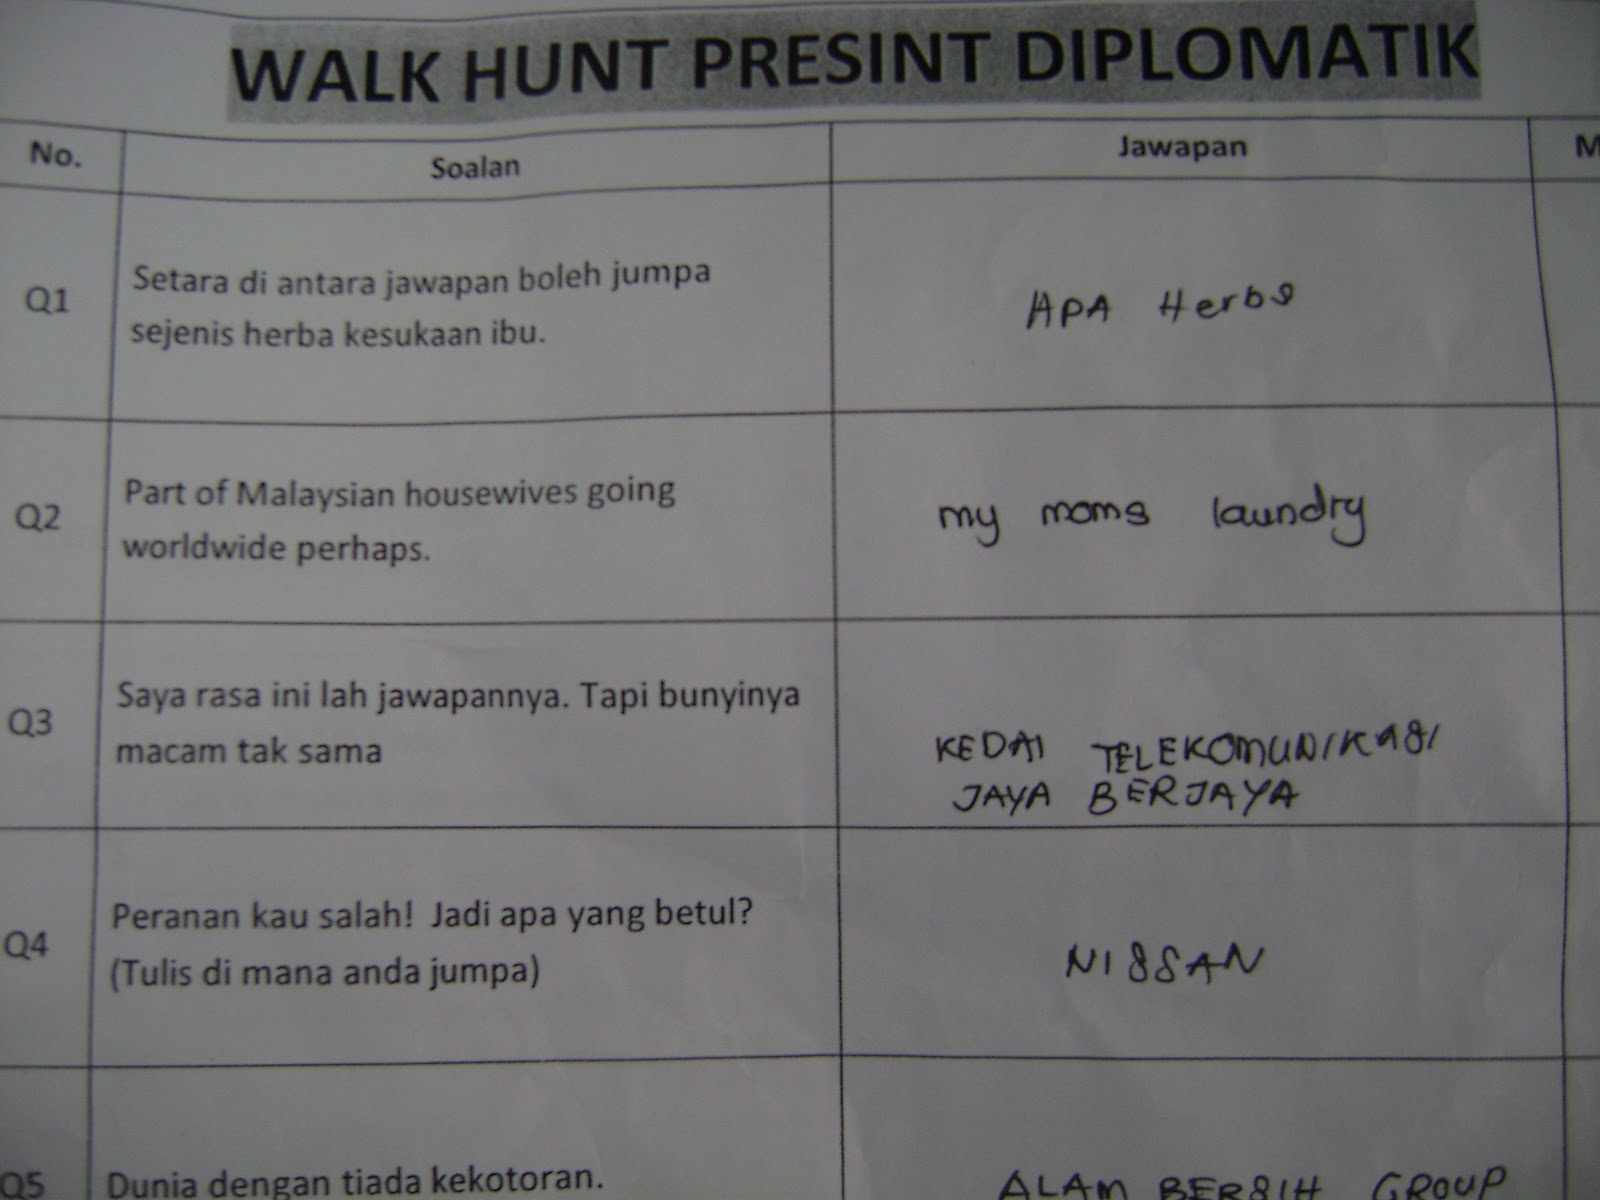 WALK HUNT PRESINT DIPLOMATIK
No. Soalan Jawapan M
Q1
Setara di antara jawapan boleh jumpa
sejenis herba kesukaan ibu.
APA Herbs
Q2
Part of Malaysian housewives going
worldwide perhaps.
my moms laundry
Q3
Saya rasa ini lah jawapannya. Tapi bunyinya
macam tak sama
KEDAI TELEKOMUNIKASI
JAYA BERJAYA
Q4
Peranan kau salah! Jadi apa yang betul?
(Tulis di mana anda jumpa)
NISSAN
Q5
Dunia dengan tiada kekotoran.
ALAM BERSIH GROUP